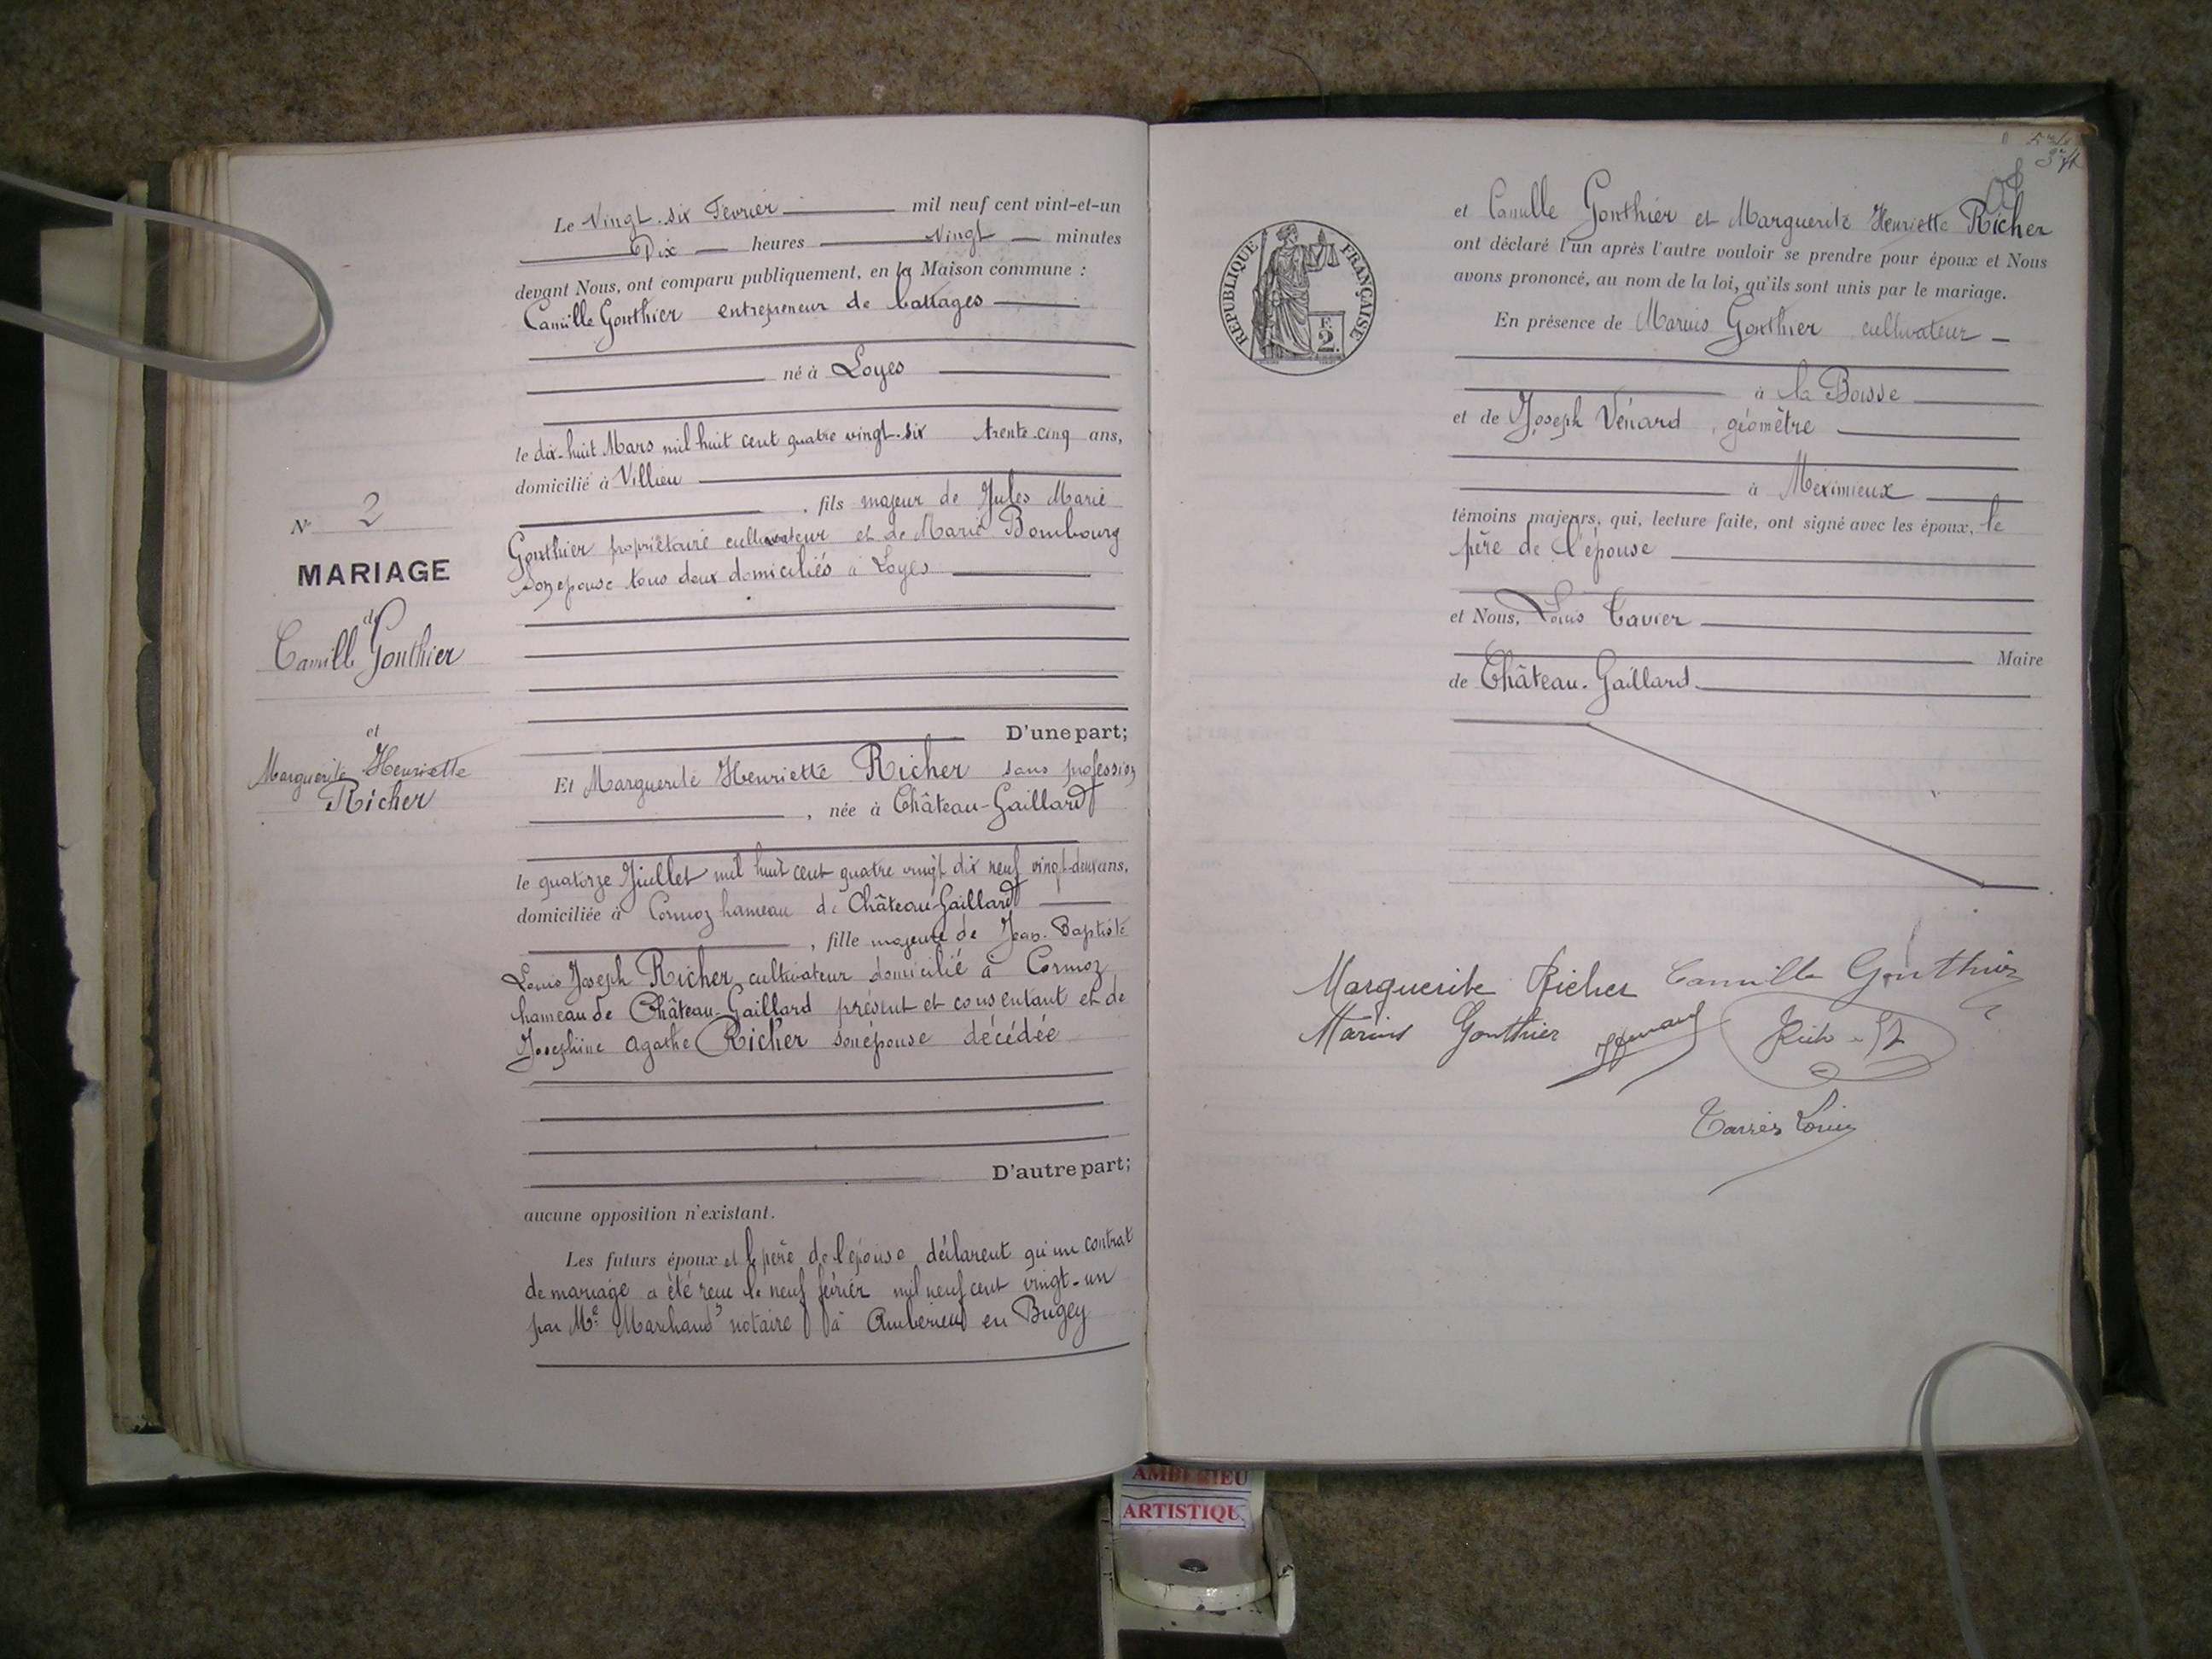 Le Vingt-six Fevrier mil neuf cent vint-et-un
Dix heures Vingt minutes
devant Nous, ont comparu publiquement, en la Maison commune :
Camille Gonthier entrepreneur de battages
né à Loyes
le dix-huit Mars mil huit cent quatre vingt-six trente-cinq ans,
domicilié à Villieu
, fils majeur de Jules Marie
Gonthier propriétaire cultivateur et de Marie Bombourg
son epouse tous deux domiciliés à Loyes
D'une part;
N° 2
MARIAGE
de
Camill Gonthier
et
Marguerite Henriette
Richer
Et Marguerite Henriette Richer sans profession
, née à Château-Gaillard
le quatorze Juillet mil huit cent quatre vingt dix neuf vingt-deux ans,
domiciliée à Cormoz hameau de Château-Gaillard
, fille majeure de Jean-Baptiste
Louis Joseph Richer cultivateur domicilié à Cormoz
hameau de Château-Gaillard présent et consentant et de
Joséphine Agathe Richer son épouse décédée
D'autre part;
aucune opposition n'existant.
Les futurs époux et le père de l'épouse déclarent qu'un contrat
de mariage a été reçu le neuf février mil neuf cent vingt-un
par Me Marchand notaire à Ambérieu en Bugey
REPUBLIQUE FRANÇAISE
F.
2.
et Camille Gonthier et Marguerite Henriette Richer
ont déclaré l'un après l'autre vouloir se prendre pour époux et Nous
avons prononcé, au nom de la loi, qu'ils sont unis par le mariage.
En présence de Marius Gonthier cultivateur
à la Boisse
et de Joseph Vénard, géomètre
à Meximieux
témoins majeurs, qui, lecture faite, ont signé avec les époux, le
père de l'épouse
et Nous, Louis Tavier
Maire
de Château-Gaillard
Marguerite Richer Camille Gonthier
Marius Gonthier
Louis
AMBERIEU
ARTISTIQU